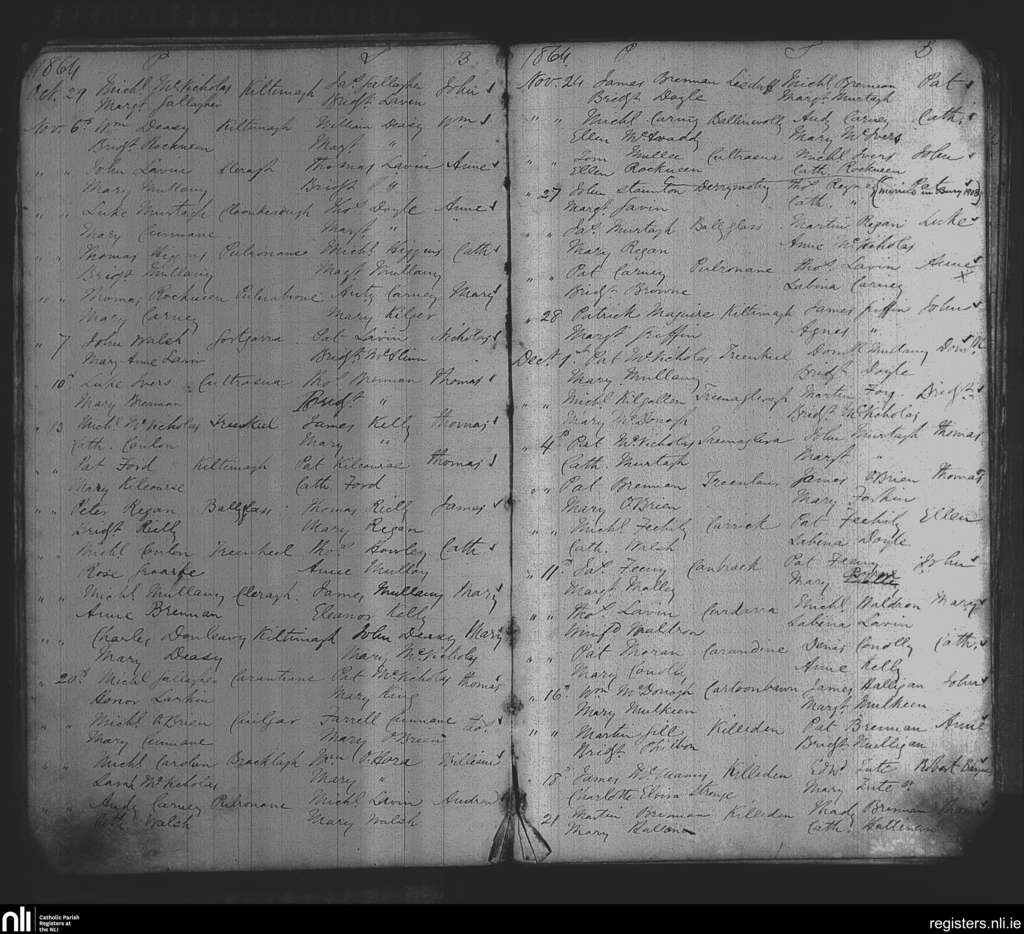 1864 P S B
Oct. 29 Michl McNicholas Kiltimagh Jas Gallagher John
Margt Gallagher Bridgt Lavin
Nov. 6th Wm Deasy Kiltimagh William Deasy Wm
Bridgt Rockneen Margt "
" " John Lavin Cleragh Thomas Lavin Anne
Mary Mullany Bridgt "
" " Luke Murtagh Thos Doyle Anne
Mary Cunnane Margt "
" " Thomas Higgins Pulronane Michl Higgins Cath
Bridgt Mullany Margt Mullany
" " Thomas Rockneen Anty Carney Mary
Mary Carney Mary Kilger
" 7 John Walsh Gortgarra Pat Lavin Nicholas
Mary Anne Lavin Bridgt
" 10th Luke Ivers Cultrasna Thos Brennan Thomas
Mary Brennan Bridgt "
" 13 Michl McNicholas Treenkeel James Kelly Thomas
Cath. Conlon Mary "
" " Pat Ford Kiltimagh Pat Kilcourse Thomas
Mary Kilcourse Cath Ford
" " Peter Regan Ballyglass Thomas Reilly James
Bridgt Reilly Mary Regan
" " Michl Conlon Treenkeel Thos Cath
Rose Anne Mulloy
" " Michl Mullany Cleragh James Mullany Mary
Anne Brennan Eleanor Kelly
" " Charles Donleavy Kiltimagh John Deasy Mary
Mary Deasy Mary McNicholas
" 20th Michl Gallagher Carantiane Pat McNicholas Thomas
Honor Larkin Mary King
" " Michl O'Brien Farrell Cunnane
Mary Cunnane Mary O'Brien
" " Michl Carolan Bracklagh Wm O'Hora William
McNicholas Mary "
" " Andy Carney Pulronane Michl Lavin Andrew
Cath Walsh Mary Walsh
1864 P S B
Nov. 24 James Brennan Lisduff Michl Brennan Pat
Bridgt Doyle Margt Murtagh
" " Michl Carney Andy Carney Cath.
Ellen Mary McIvers
" " Mullee Cultrasna Michl Ivers John
Ellen Rockneen Cath Rockneen
" 27 John Staunton Thos Regney
Margt Gavin Cath. "
" " Jas Murtagh Ballyglass Martin Regan Luke
Mary Regan Anne McNicholas
" " Pat Carney Pulronane Thos Lavin Anne
Bridgt Browne Sabina Carney x
" 28 Patrick Maguire Kiltimagh James Griffin John
Margt Griffin Agnes "
Decr 1st Pat McNicholas Treenkeel Domk Mullany Domk
Mary Mullany Bridgt Doyle
" " Michl Kilgallen Martin Foy Bridgt
Mary McDonagh Bridgt McNicholas
" 4th Pat McNicholas John Murtagh Thomas
Cath. Murtagh Margt "
" " Pat Brennan James O'Brien Thomas
Mary O'Brien Mary
" " Michl Feehily Carrick Pat Feehily Ellen
Cath. Walsh Sabina Doyle
" 11th Jas Feeny Canbrack Pat Feeny John
Margt Molloy Mary
" " Thos Lavin Michl Waldron Mary
Winfd Waldron Sabina Lavin
" " Pat Moran Carandine Denis Conolly Cath.
Mary Conolly Anne Kelly
" 16th Wm McDonagh James Halligan John
Mary Mulkeen Margt Mulkeen
" " Martin Gill Killeden Pat Brennan Anne
Bridgt Philbon Bridgt Mulligan
" 18th James Killeden Edwd Tute Robert
Charlotte Elvira Strange Mary Tute
" 21 Martin Brennan Killeden Brennan
Mary Cath.
nli
Catholic Parish
Registers at
the NLI
registers.nli.ie